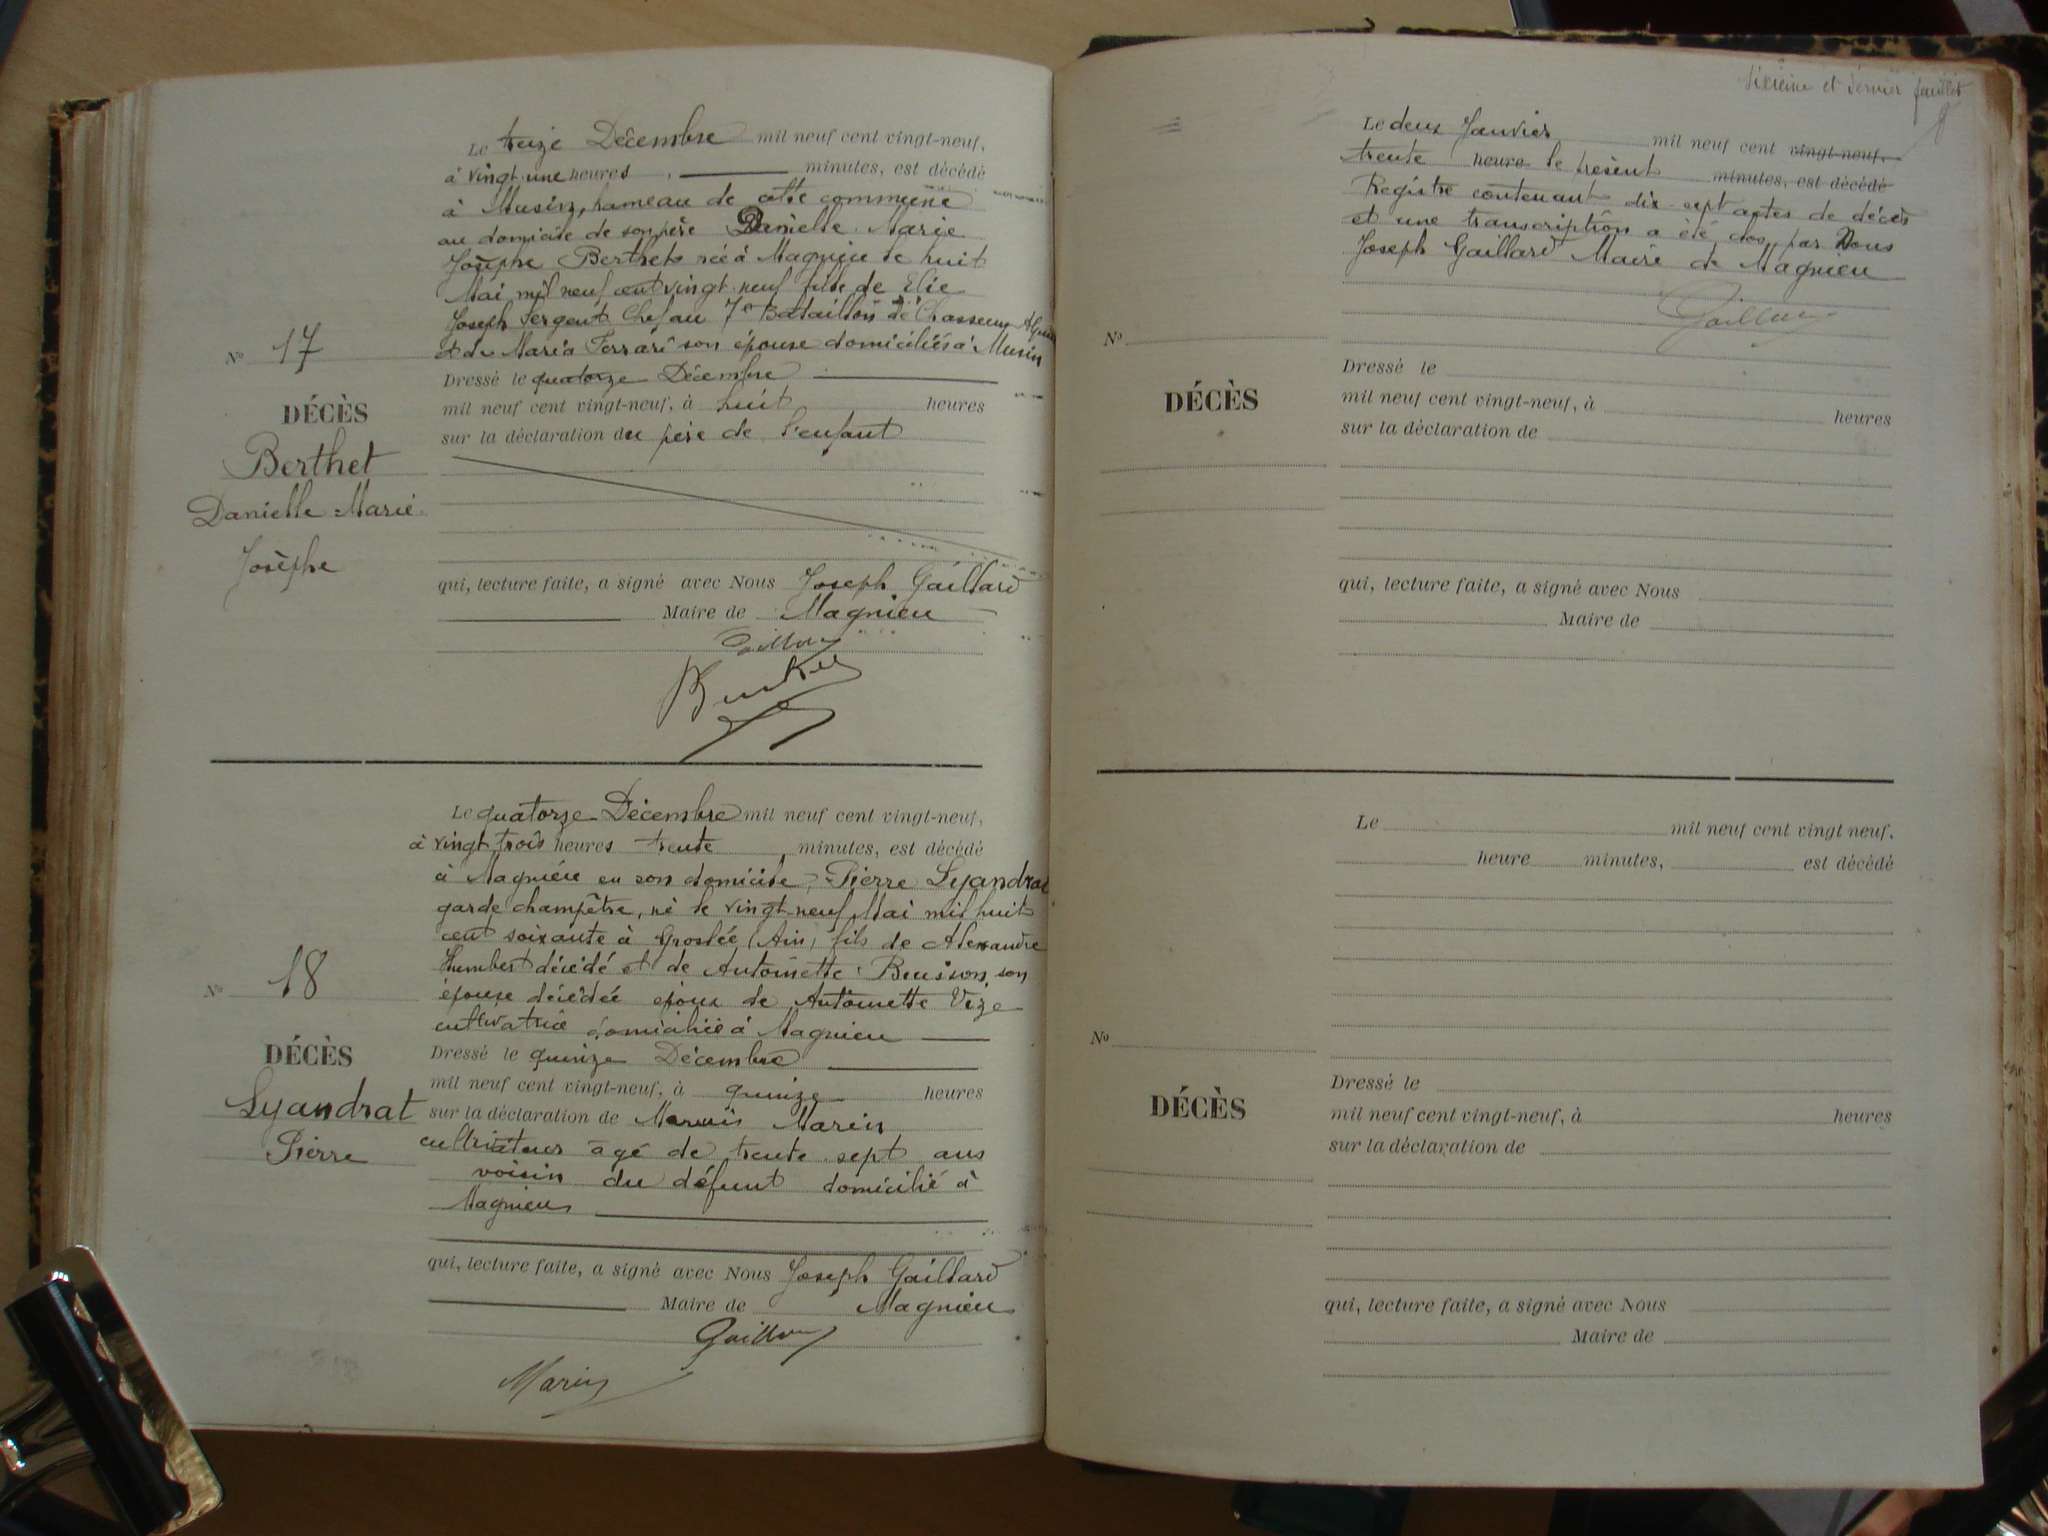 Le treize Décembre mil neuf cent vingt-neuf,
à vingt une heures minutes, est décédé
à Musin, hameau de cette commune
au domicile de son père Danielle Marie
Josèphe Berthet née à Magnieu le huit
Mai mil neuf cent vingt neuf fille de Elie
Joseph Sergent Chef au 7e Bataillon de Chasseurs Alpins
et de Maria Ferrari son épouse domiciliés à Musin
No 17
Dressé le quatorze Décembre
DÉCÈS
mil neuf cent vingt-neuf, à huit heures
sur la déclaration du père de l'enfant
Berthet
Danielle Marie
Josèphe
qui, lecture faite, a signé avec Nous Joseph Gaillard
Maire de Magnieu
Gaillard
Berthet
Le quatorze Décembre mil neuf cent vingt-neuf,
à vingt trois heures trente minutes, est décédé
à Magnieu en son domicile, Pierre Lyandrat
garde champêtre, né le vingt-neuf Mai mil huit
cent soixante à Groslée (Ain) fils de Alexandre
Humbert décédé et de Antoinette Buisson, son
épouse décédée époux de Antoinette Vize
cultivatrice domiciliée à Magnieu
No 18
DÉCÈS
Dressé le quinze Décembre
mil neuf cent vingt-neuf, à quinze heures
Lyandrat
Pierre
sur la déclaration de Marin
cultivateur âgé de trente sept ans
voisin du défunt domicilié à
Magnieu
qui, lecture faite, a signé avec Nous Joseph Gaillard
Maire de Magnieu
Gaillard
Marin
Sixième et dernier feuillet
Le deux Janvier mil neuf cent vingt-neuf,
trente heure le présent minutes, est décédé
Registre contenant dix-sept actes de décès
et une transcription a été clos par Nous
Joseph Gaillard Maire de Magnieu
Gaillard
No
Dressé le
DÉCÈS
mil neuf cent vingt-neuf, à heures
sur la déclaration de
qui, lecture faite, a signé avec Nous
Maire de
Le mil neuf cent vingt neuf,
heure minutes, est décédé
No
DÉCÈS
Dressé le
mil neuf cent vingt-neuf, à heures
sur la déclaration de
qui, lecture faite, a signé avec Nous
Maire de